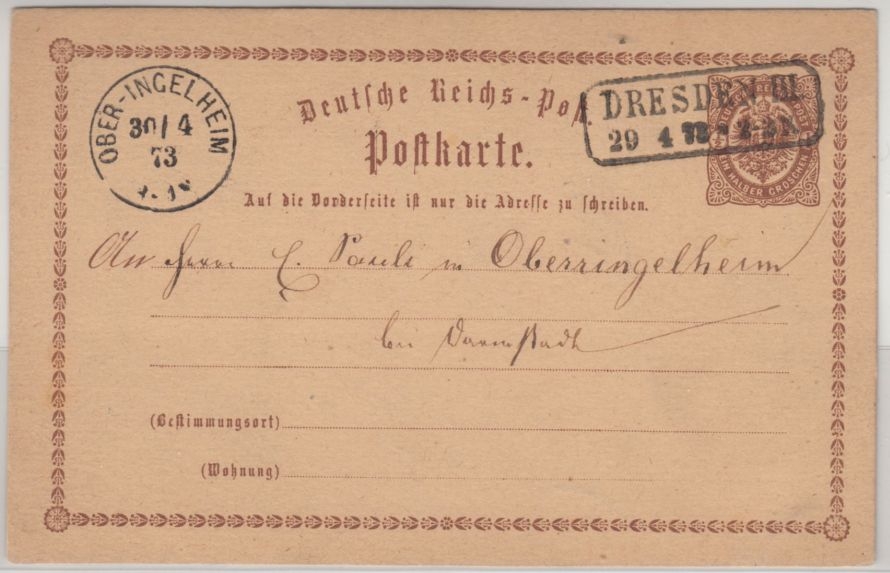 OBER-INGELHEIM
30/4
73
Deutsche Reichs-Pos
DRESDEN III
29 4 73
EIN HALBER GROSCHEN
Postkarte.
Auf die Vorderseite ist nur die Adresse zu schreiben.
An Herrn C. Pauli in Oberringelheim
bei Darmstadt
(Bestimmungsort)
(Wohnung)